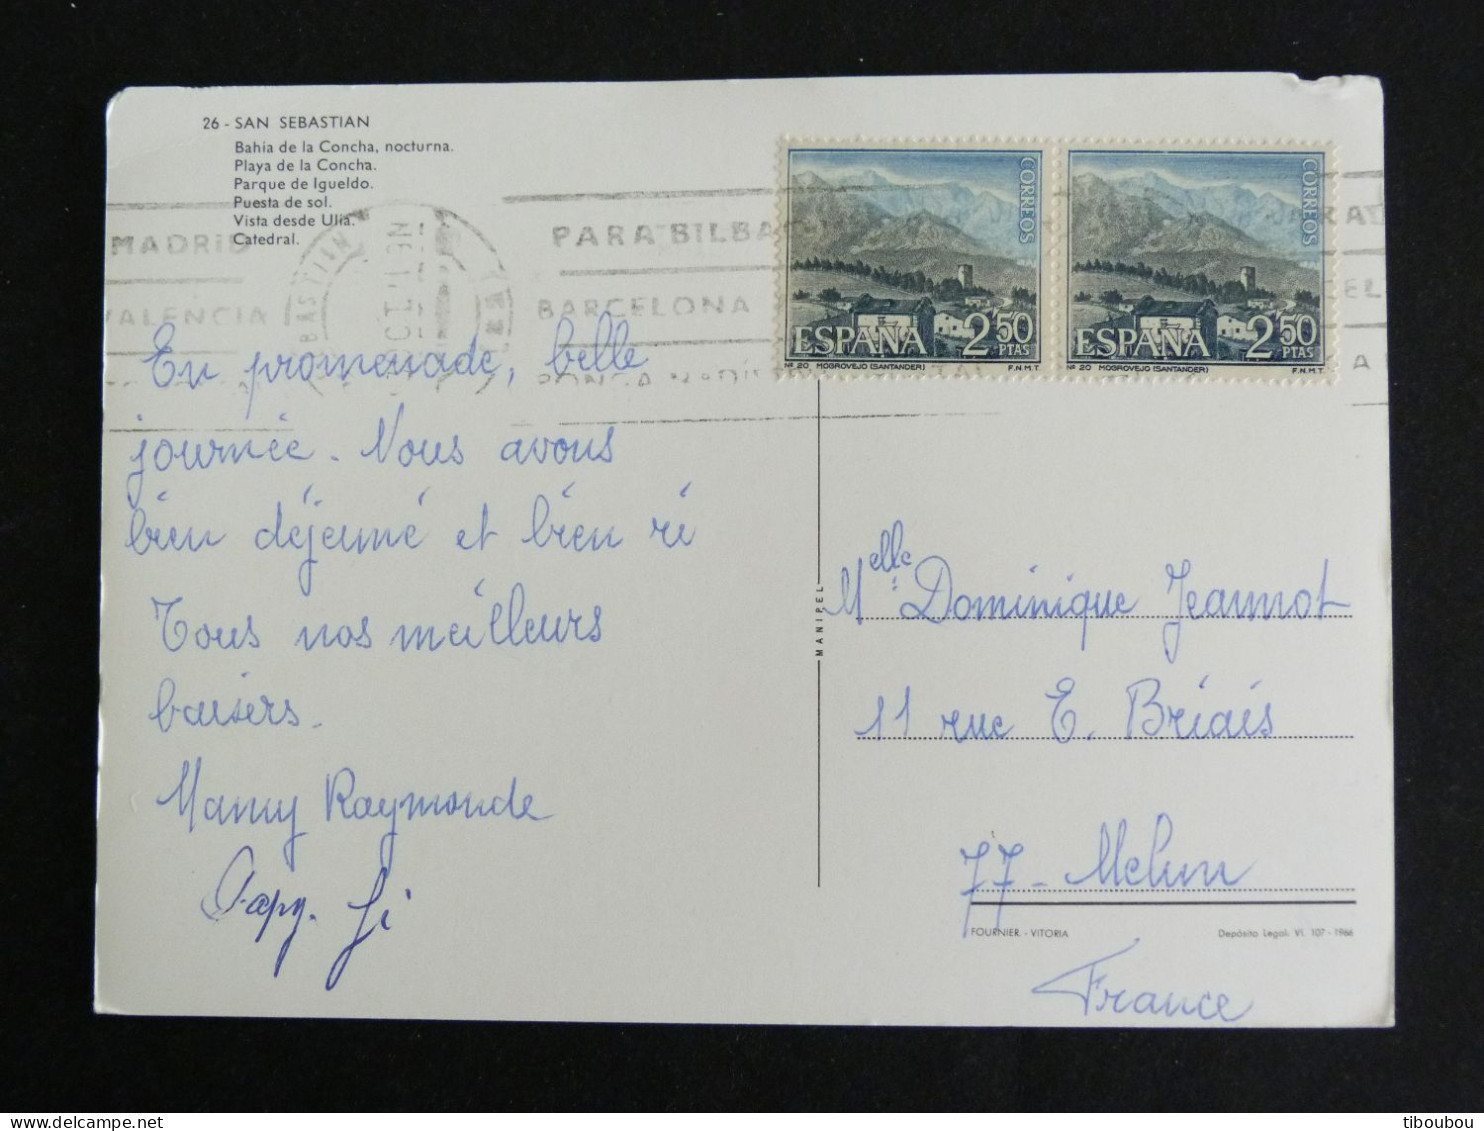 26 - SAN SEBASTIAN
Bahía de la Concha, nocturna.
Playa de la Concha.
Parque de Igueldo.
Puesta de sol.
Vista desde Ulía.
Catedral.
MADRID
VALENCIA
PARA BILBA
BARCELONA
CORREOS
ESPAÑA 2,50 PTAS
Nº 20 MOGROVEJO (SANTANDER) F.N.M.T.
CORREOS
ESPAÑA 2,50 PTAS
Nº 20 MOGROVEJO (SANTANDER) F.N.M.T.
En promenade, belle
journée. Nous avons
bien déjeuné et bien ri
Tous nos meilleurs
baisers.
Mamy Raymonde
Papy. Ji
MANIPEL
Melle Dominique Jeannot
11 rue E. Briais
77 - Melun
FOURNIER - VITORIA
Depósito Legal: VI. 107 - 1966
France
tiboubou